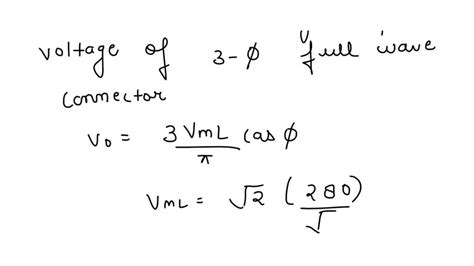 voltage of 3-φ full wave
connector
V₀ = 3 VmL / π cos φ
VmL = √2 ( 280 / √ )